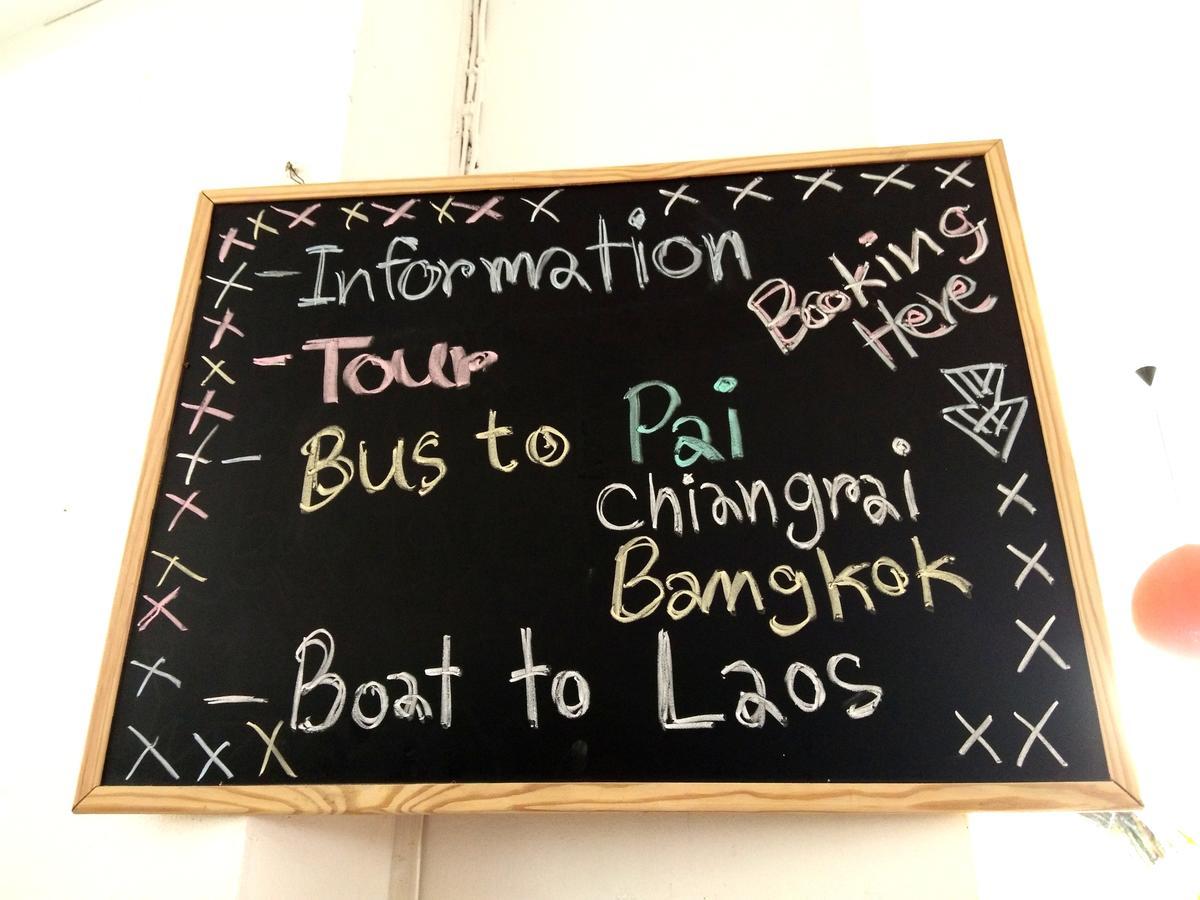 - Information
Booking
Here
- Tour
- Bus to Pai
chiangrai
Bamgkok
- Boat to Laos